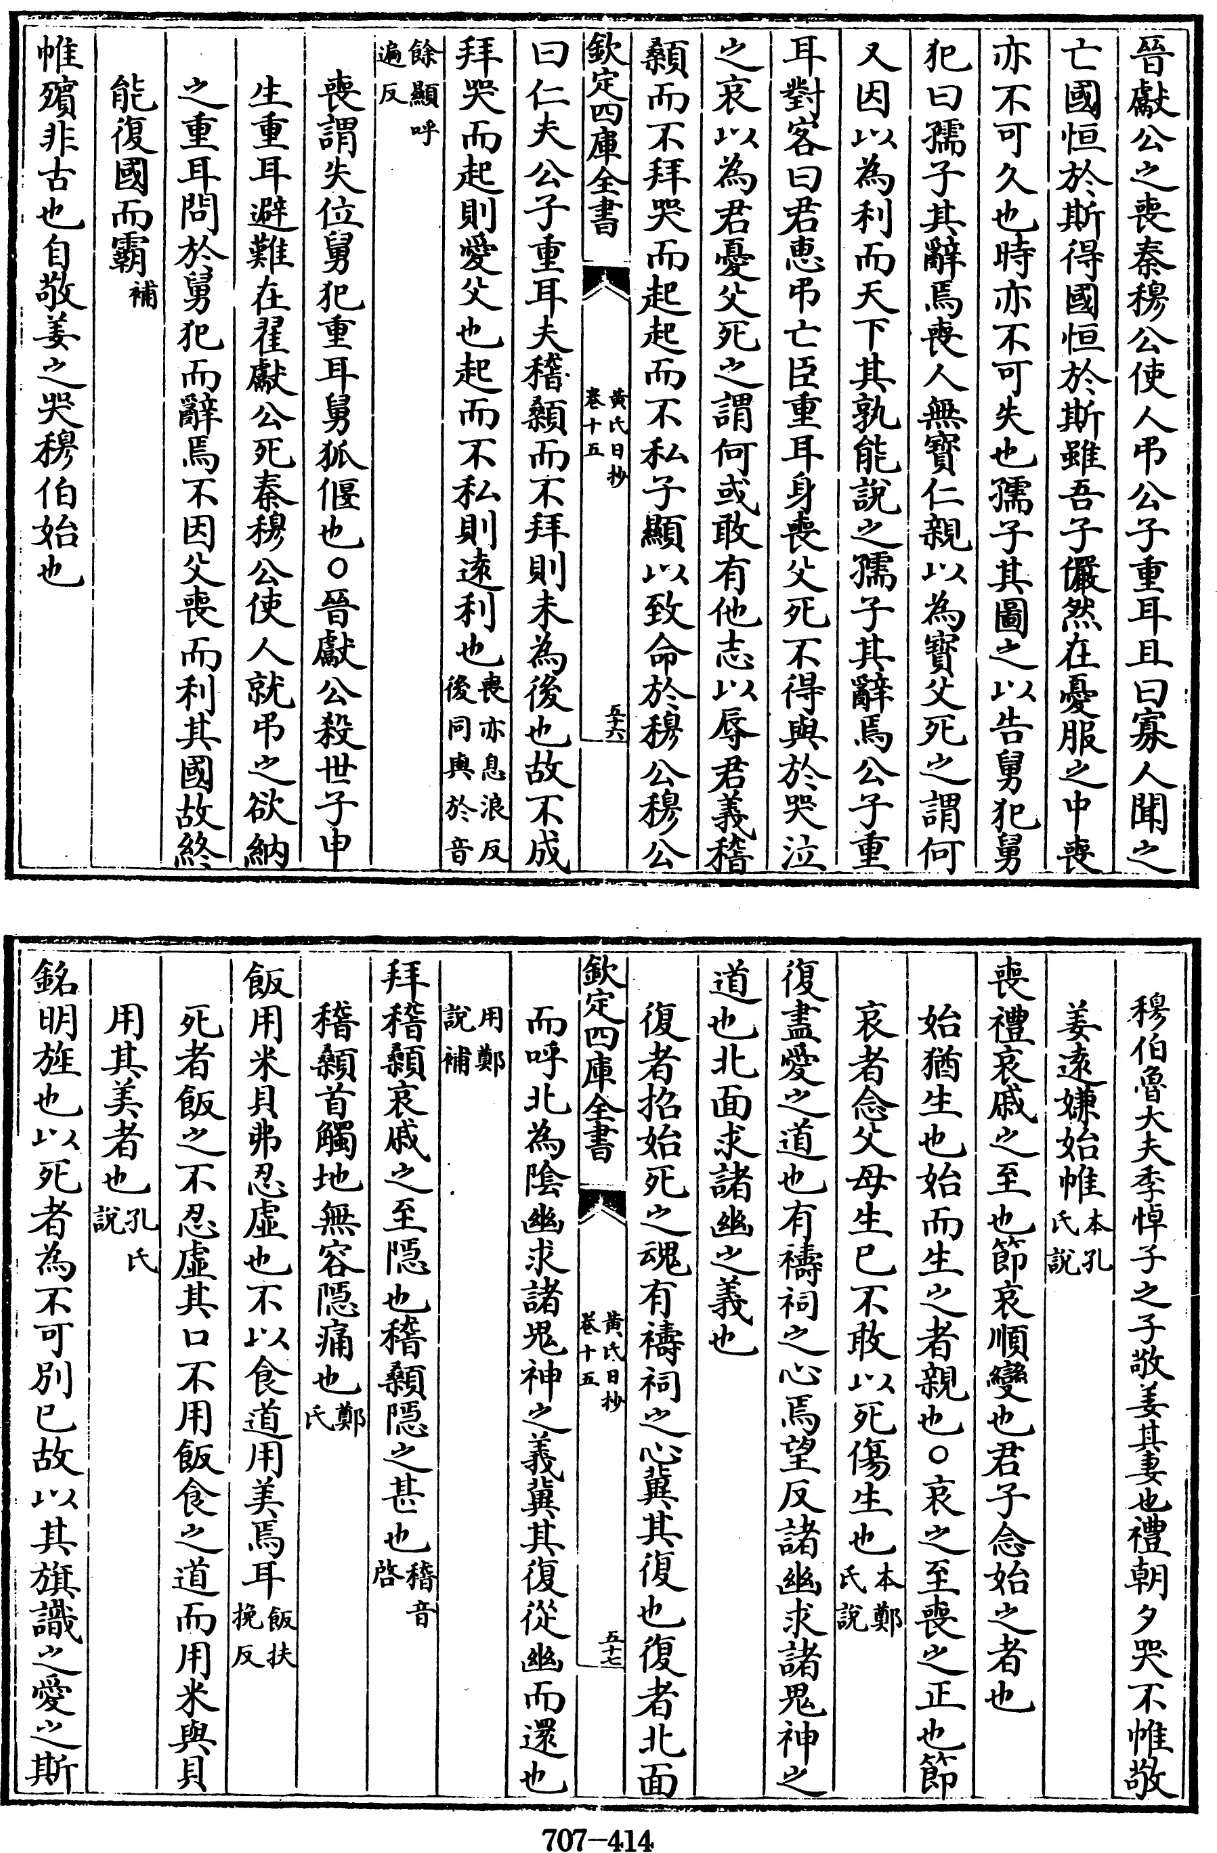 晉獻公之喪秦穆公使人弔公子重耳且曰寡人聞之
亡國恒於斯得國恒於斯雖吾子儼然在憂服之中喪
亦不可久也時亦不可失也孺子其圖之以告舅犯舅
犯曰孺子其辭焉喪人無寶仁親以為寶父死之謂何
又因以為利而天下其孰能說之孺子其辭焉公子重
耳對客曰君惠弔亡臣重耳身喪父死不得與於哭泣
之哀以為君憂父死之謂何或敢有他志以辱君義稽
顙而不拜哭而起起而不私子顯以致命於穆公穆公
欽定四庫全書
黃氏日抄
卷十五
五十六
曰仁夫公子重耳夫稽顙而不拜則未為後也故不成
拜哭而起則愛父也起而不私則遠利也喪亦息浪反後同與於音
餘顯呼遍反
喪謂失位舅犯重耳舅狐偃也○晉獻公殺世子申
生重耳避難在翟獻公死秦穆公使人就弔之欲納
之重耳問於舅犯而辭焉不因父喪而利其國故終
能復國而霸補
帷殯非古也自敬姜之哭穆伯始也
穆伯魯大夫季悼子之子敬姜其妻也禮朝夕哭不帷敬
姜遠嫌始帷本孔氏說
喪禮哀戚之至也節哀順變也君子念始之者也
始猶生也始而生之者親也○哀之至喪之正也節
哀者念父母生已不敢以死傷生也本鄭氏說
復盡愛之道也有禱祠之心焉望反諸幽求諸鬼神之
道也北面求諸幽之義也
復者招始死之魂有禱祠之心冀其復也復者北面
欽定四庫全書
黃氏日抄
卷十五
五十七
而呼北為陰幽求諸鬼神之義冀其復從幽而還也
用鄭說補
拜稽顙哀戚之至隱也稽顙隱之甚也稽音啓
稽顙首觸地無容隱痛也鄭氏
飯用米貝弗忍虛也不以食道用美焉耳飯扶挽反
死者飯之不忍虛其口不用飯食之道而用米與貝
用其美者也孔氏說
銘明旌也以死者為不可別已故以其旗識之愛之斯
707-414